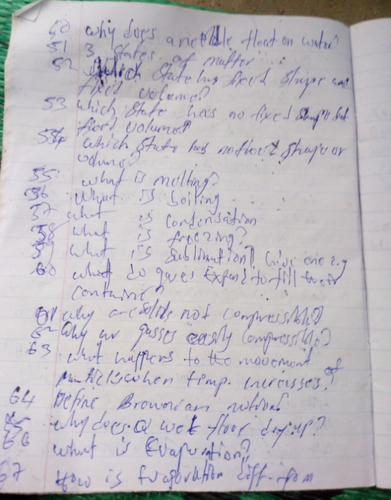 50 why does a needle float on water?
51 3 states of matter
52 which state has fixed shape and
fixed volume?
53 which state has no fixed shape but
fixed volume?
54 which state has no fixed shape or
volume?
55 what is melting?
56 what is boiling
57 what is condensation
58 what is freezing?
59 what is sublimation? Give one e.g
60 what do gases expand to fill their
container?
61 why are solids not compressible?
62 why are gasses easily compressible?
63 what happens to the movement of
particles when temp. increases?
64 Define Brownian motion?
65 why does a wet floor dry up?
66 what is Evaporation?
67 How is Evaporation diff. from